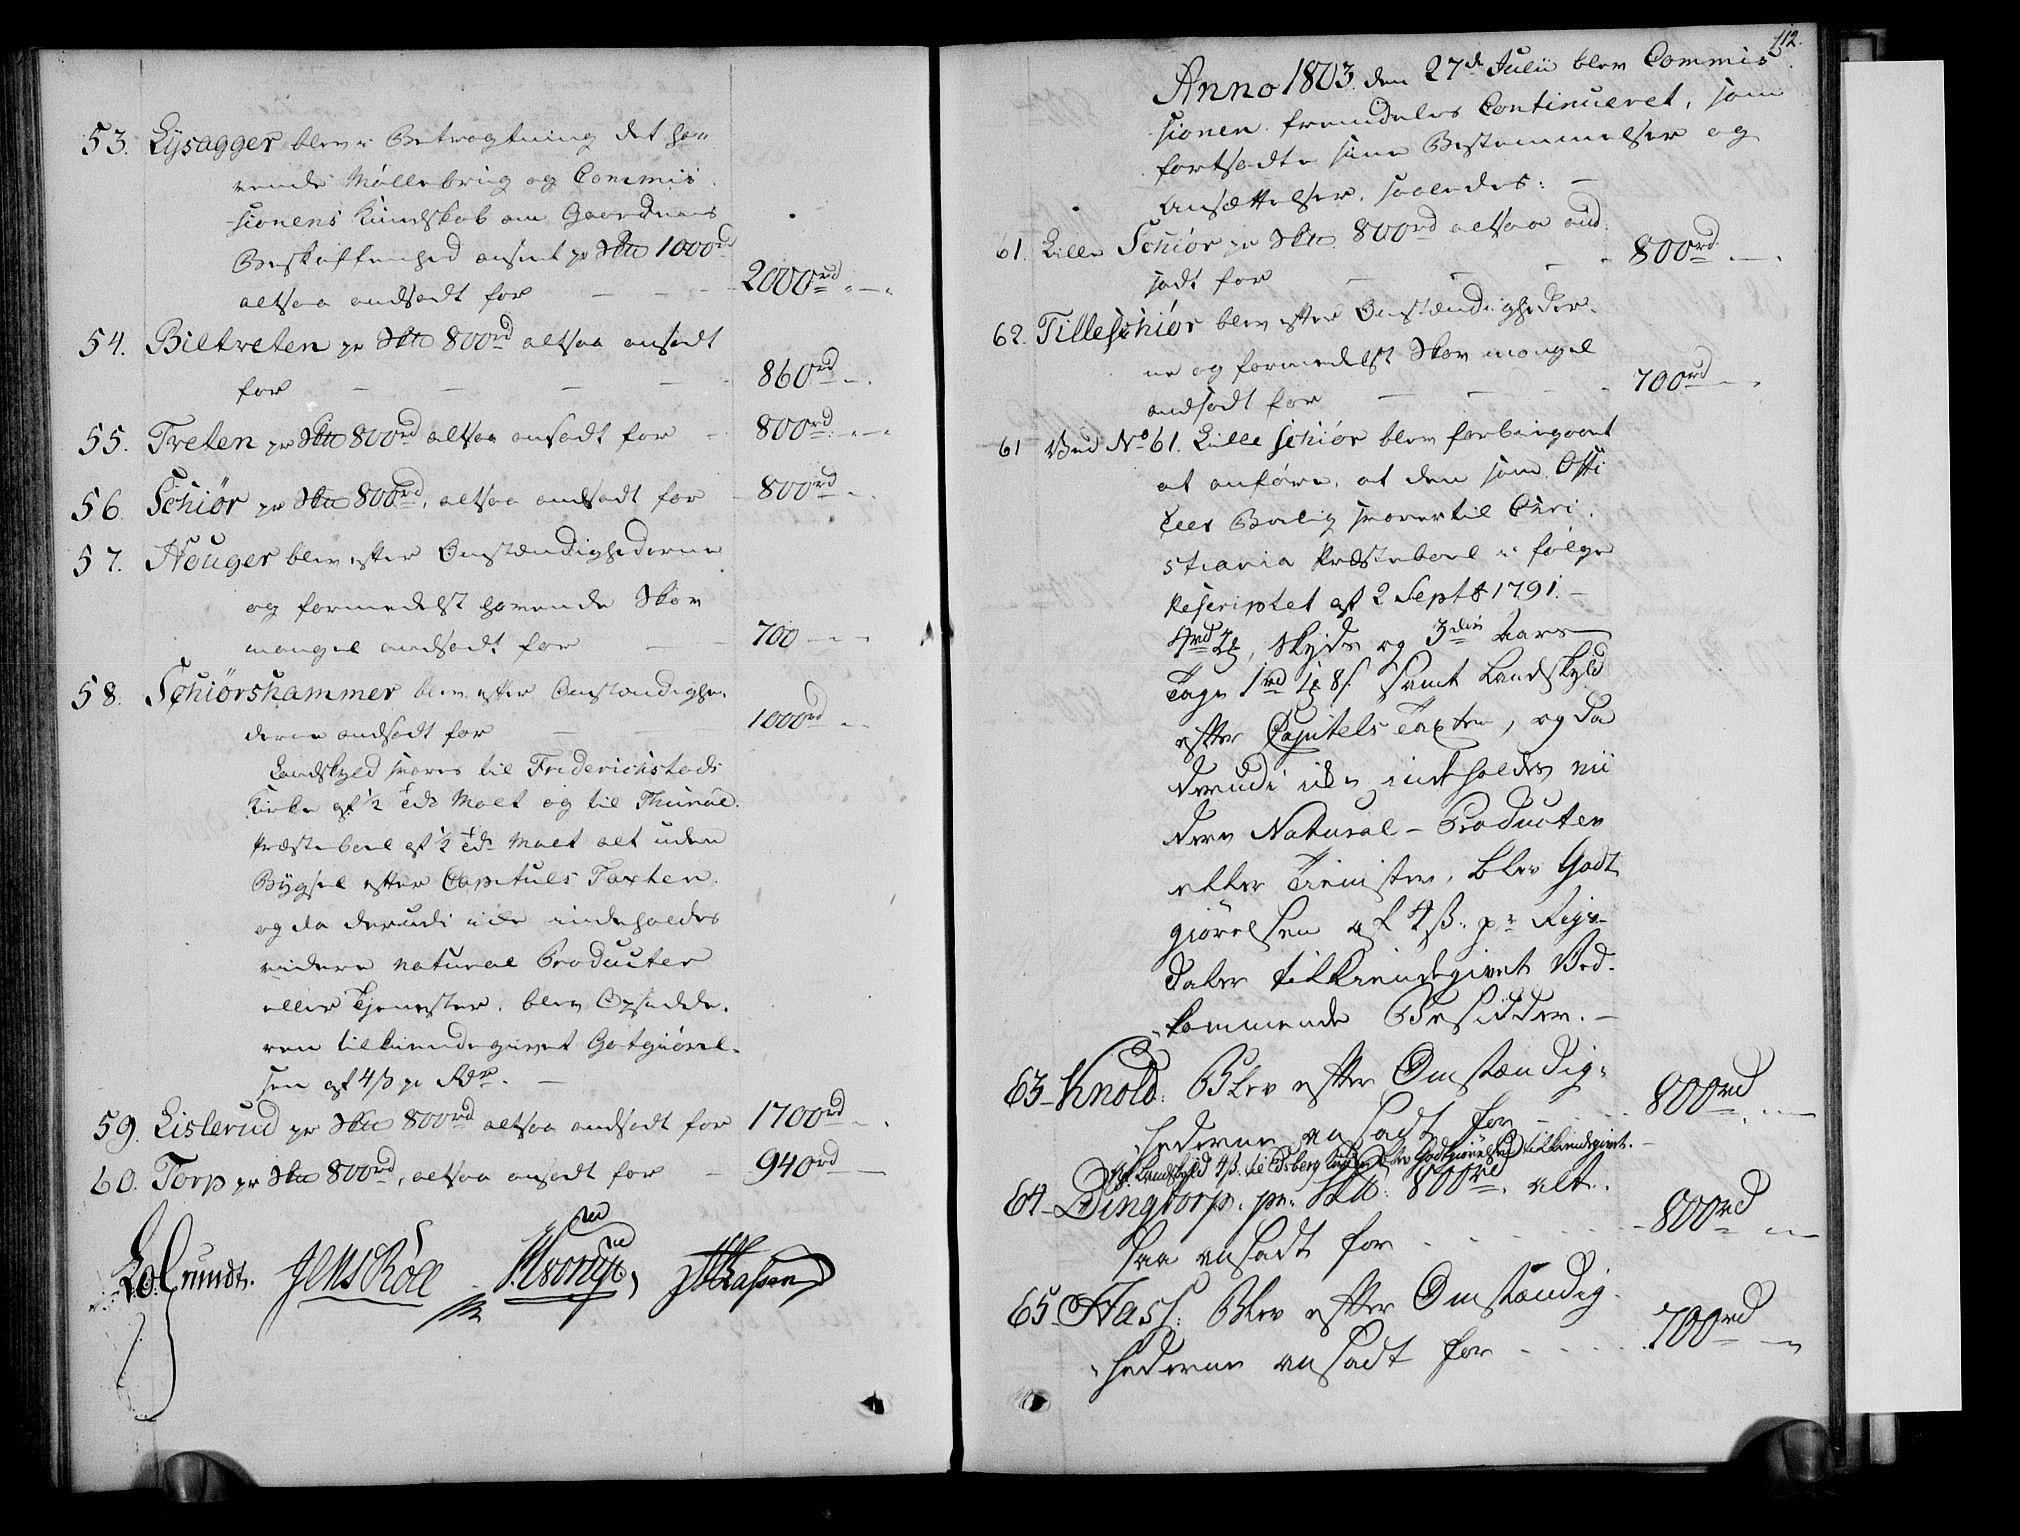 53. Lysagger blev i Betragtning det ha„
vende Møllebrug og Commis
sionens Kundskab om Gaardens
Beskaffenhed ansat pr Skt 1000rd
altsaa andsadt for — — — 2000rd „ — „
54. Biltreten pr Skt 800rd altsaa ansadt
for — — — — 860rd — „
55. Treten pr Skt 800rd altsaa ansadt for — 800rd „ — „
56. Schiør pr Skt 800rd, altsaa andsadt for — 800rd — „
57. Houger blev efter Omstændighederne
og formedelst havende Skov
mangel andsadt for — — 700 — „ —
58. Schiørshammer blev efter Omstændighe„
derne andsadt for — — 1000rd — „
Landskyld svares til Friderichstads
Kirke af ½ Tde Malt og til Thunøe
Præsteboel af ½ Tde Malt alt uden
Bygsel efter Capituls Taxten
og da derudi icke indeholdes
videre natural Producter
eller Tjenester, blev Opsidde„
ren tilkiendegivet Gotgiørel„
sen af 4 ß pr Rdr. —
59. Lislerud pr Skt 800rd altsaa andsadt for 1700rd — „
60. Torp pr Skt 800rd, altsaa ansadt for — 940rd —
Jens Röed
112.
Anno 1803 den 27de Julii blev Commis
sionen fremdeles Continueret, som
fortsadte sine Bestemmelser og
Ansættelser, saaledes: —
61. Lille Schiør pr Skt. 800rd altsaa and
sadt for — — — 800rd — „
62. Tilleschiør blev efter Omstændigheder„
ne og formedelst Skov mangel
andsadt for — — — 700rd — „
61 Ved No 61. Lille Schiør blev forbigaaet
at anføre, at den som Offi
ceer Bolig svarer til Chri„
stiania Præsteboel i følge
Rescriptet af 2 Septb 1791. —
4rd 2 , Skyds og 3die Aars
Tage 1rd 1 8 s. samt Landskyld
efter Capitels Taxten, og da
derudi icke indholdes vii
dere Natural - Producter
eller Tienister, blev Godt
giørelsen af 4 ß. pr Rigs-
daler tilkiendegivet Ved-
kommende Besidder. —
63 - Knold. Blev efter Omstændig„
hederne ansadt for — 800rd — „ —
Af Landskyld 4 ß. til Edsberg blev Godtgiørelsen tilkiendegivet. —
64 - Dingtorp. pr. Skt: 800rd. alt„
saa ansadt for - - - - 800rd „ —
65 - Hass. Blev efter Omstændig„
hederne ansadt for - - - 700rd —